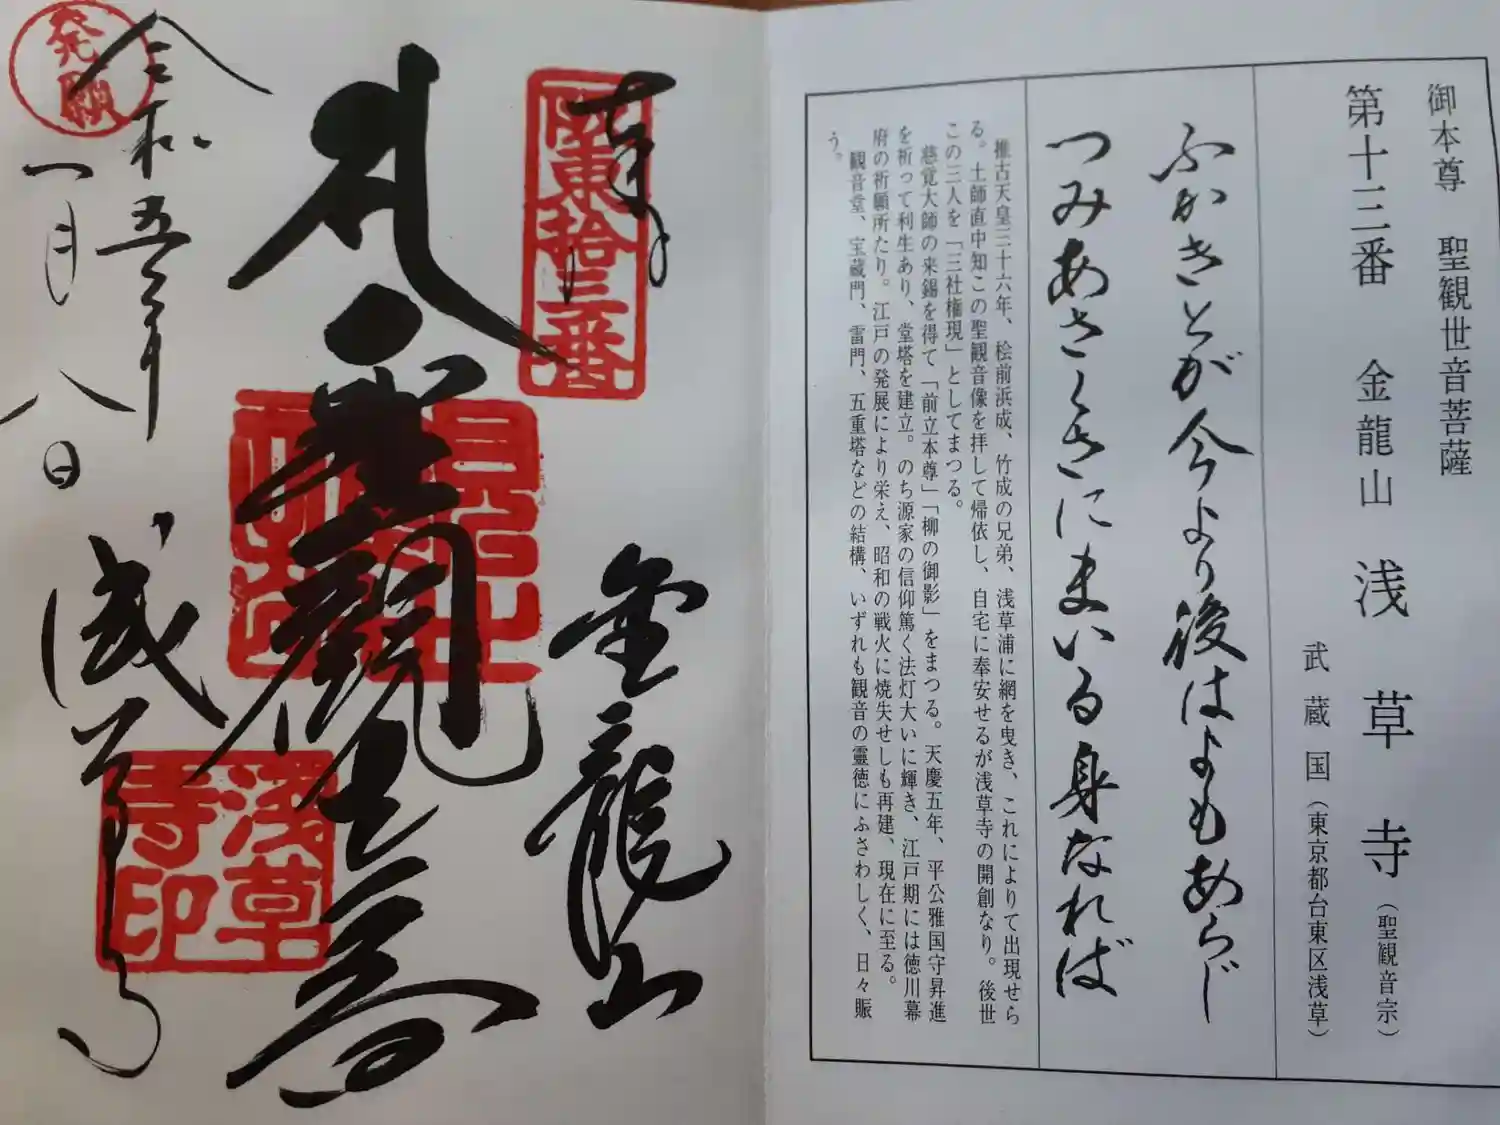 御本尊　聖観世音菩薩
第十三番　金龍山　浅草寺（聖観音宗）
武蔵国（東京都台東区浅草）
ふかきとが今より後はよもあらじ
つみあさくさにまいる身なれば
推古天皇三十六年、桧前浜成、竹成の兄弟、浅草浦に網を曳き、これによりて出現せら
る。土師直中知この聖観音像を拝して帰依し、自宅に奉安せるが浅草寺の開創なり。後世
この三人を「三社権現」としてまつる。
慈覚大師の来錫を得て「前立本尊」「柳の御影」をまつる。天慶五年、平公雅国守昇進
を祈って利生あり、堂塔を建立。のち源家の信仰篤く法灯大いに輝き、江戸期には徳川幕
府の祈願所たり。江戸の発展により栄え、昭和の戦火に焼失せしも再建、現在に至る。
観音堂、宝蔵門、雷門、五重塔などの結構、いずれも観音の霊徳にふさわしく、日々賑
う。
奉
坂東拾三番
金龍山
聖観世音
浅草寺印
発願
令和五年
一月八日
浅草寺